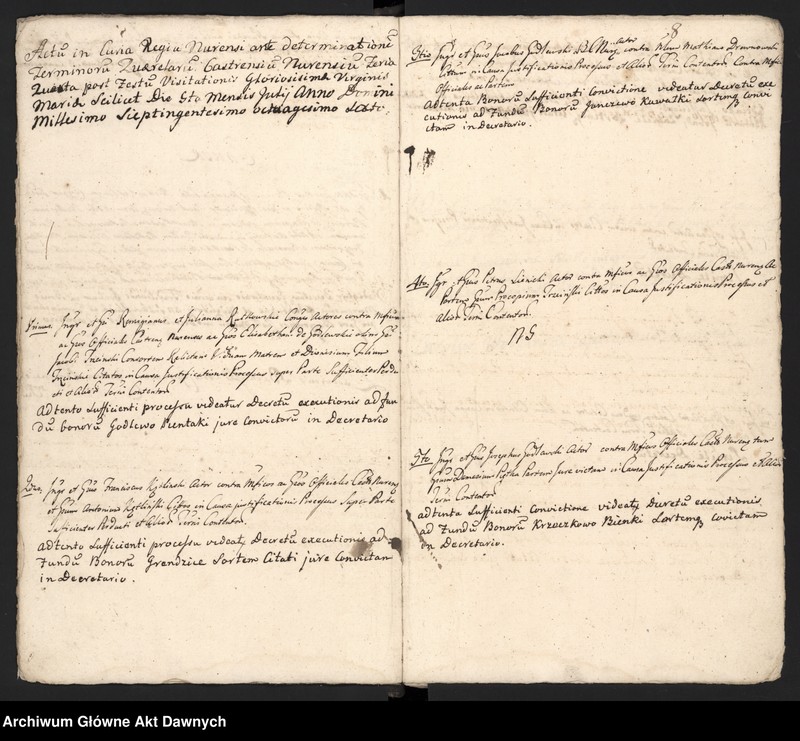 Actũ in Curia Regia Nurensi ante determinationẽ
Terminorũ Querelarũ Castrensiũ Nurensiũ Feria
Quarta post Festũ Visitationis Gloriosissimæ Virginis
Mariæ Scilicet Die 5to Mensis Julij Anno Domini
Millesimo Sieptingentesimo octuagesimo Sexto,
Primus. Ingr et Gũ Remigianus et Julianna Rutkowskie Conges Actores contra Mficum
ac Gsos Officiales Castren Nurenses ac Gsos Elisabetham de Godlewskie olim Gsi
Jacobi Trzcinski Consortem Relictam Viduam Matrem et Dionisium Filium
Trzcinskie Citatos in Causa Justificationis Processus super Parte Sufficienter Produ
cti et Alios Terñi Contentos
Adtento Sufficienti processu videatur Decretũ executionis ad fun
dũ bonorũ Godlewo Pientaki jure Convictorũ in Decretario
2dus, Ingr et Gsus Franciscus Actor contra Mficos ac Gsos Officiales Castr Nureng
et Gsum Antonium Cittos in Causa justificationis Processus Super Parte
Sufficienter Producti et Alios Terñi Contentos.
adtento Sufficienti processu videatr Decretũ executionis ad
Fundũ Bonorũ Grendzice Sortem Citati jure Convictam
in Decretario.
8
3tio Ingr et Gsus Jacobus Godlewski Actor contra Mathiam Drewnowski
Cittum in Causa Justificationis Processus et Alios Terñi Contentos Contra
Officiales ac Partem
adtenta Bonorũ Sufficienti Convictione videatur Decretũ exe
cutionis ad Fundũ Bonorũ Janczewo Kuwałki Sorteng convi
ctam in Decretario.
4to. Ingr et Gsus Petrus Lienicki Actor contra Mficum ac Gsos Officiales Castr Nureng Ac
Partem Gsum Procopium Trzcinski Cittos in Causa Justificationis Processus et
Alios Terñi Contentos.
NS
5to Ingr et Gsus Josephus Godlewski Actor contra Mficos Officiales Castr Nureng tum
Gsum Partem Jure victam in Causa Justificationis Processus et Alios
Terñi Contentos
adtenta Sufficienti Convictione videatr Decretũ executionis
ad Fundũ Bonorũ Krzeczkowo Bienki Sorteng covictam
in Decretario.
Archiwum Główne Akt Dawnych